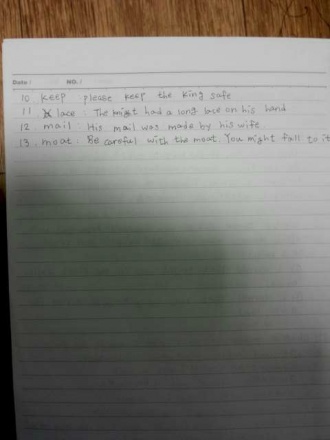 Date / NO. /
10. keep please keep the king safe
11 lace The might had a long lace on his hand
12. mail His mail was made by his wife
13. moat Be careful with the moat. You might fall to it